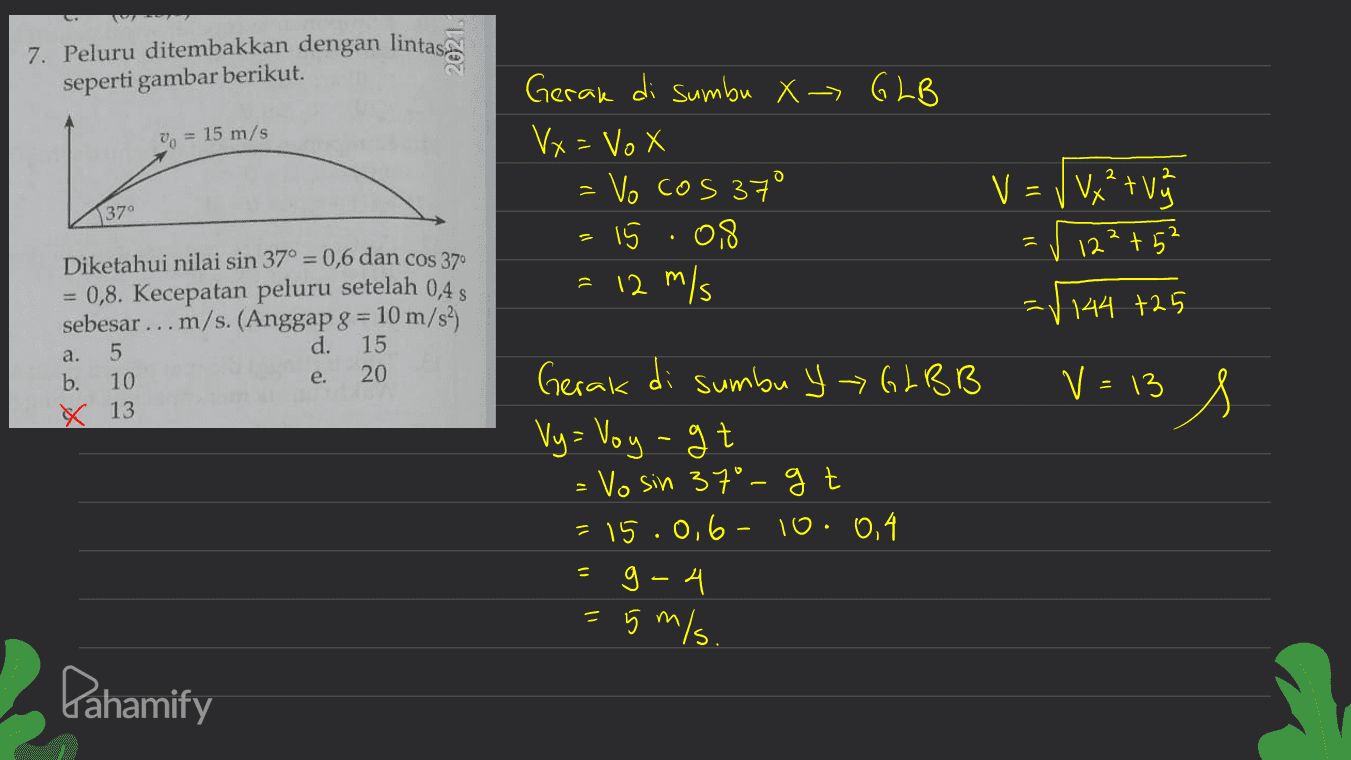 7. Peluru ditembakkan dengan lintasa
seperti gambar berikut.
2021.
v₀ = 15 m/s
37°
Diketahui nilai sin 37° = 0,6 dan cos 37°
= 0,8. Kecepatan peluru setelah 0,4 s
sebesar ... m/s. (Anggap g = 10 m/s²)
a. 5
b. 10
c. 13
d. 15
e. 20
Gerak di sumbu X → GLB
Vx = Vo x
= Vo cos 37°
= 15 . 0,8
= 12 m/s
Gerak di sumbu y → GLBB
Vy = Voy - gt
= Vo sin 37° - g t
= 15 . 0,6 - 10 . 0,4
= 9 - 4
= 5 m/s.
V = √Vx² + Vy²
= √12² + 5²
= √144 + 25
V = 13
Pahamify